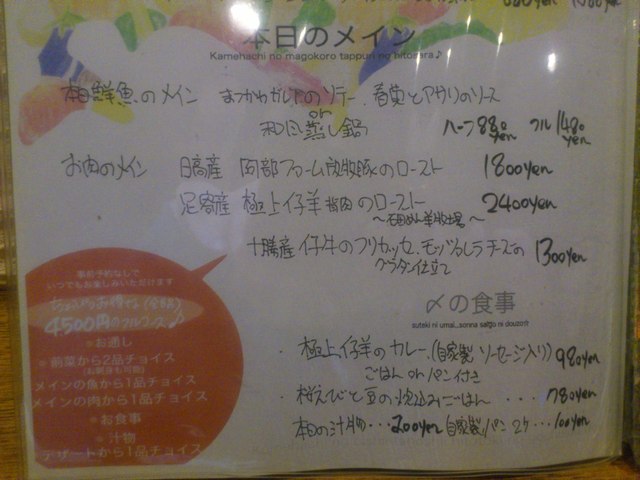 本日のメイン
Kamehachi no magokoro tappuri no hitosara♪
本日鮮魚のメイン まつかわガレイのソテー 春菊とアサリのソース
or
和風蒸し鍋 ハーフ880yen フル1480yen
お肉のメイン 日高産 阿部ファーム放牧豚のロースト 1800yen
足寄産 極上仔羊 のロースト 2400yen
〜石田めん羊牧場〜
十勝産 仔牛のフリカッセ、モッツァレラチーズの
グラタン仕立て 1300yen
事前予約なしで
いつでもお楽しみいただけます
4500円のフルコース♪
お通し
前菜から2品チョイス
(お刺身も可能)
メインの魚から1品チョイス
メインの肉から1品チョイス
お食事
汁物
デザートから1品チョイス
〆の食事
suteki ni umai...sonna saigo ni douzo☆
・極上仔羊のカレー(自家製ソーセージ入り) 980yen
ごはん or パン付き
・桜えびと豆の炊込みごはん ・・・ 780yen
・本日の汁物・・・200yen 自家製パン 2ケ・・・100yen